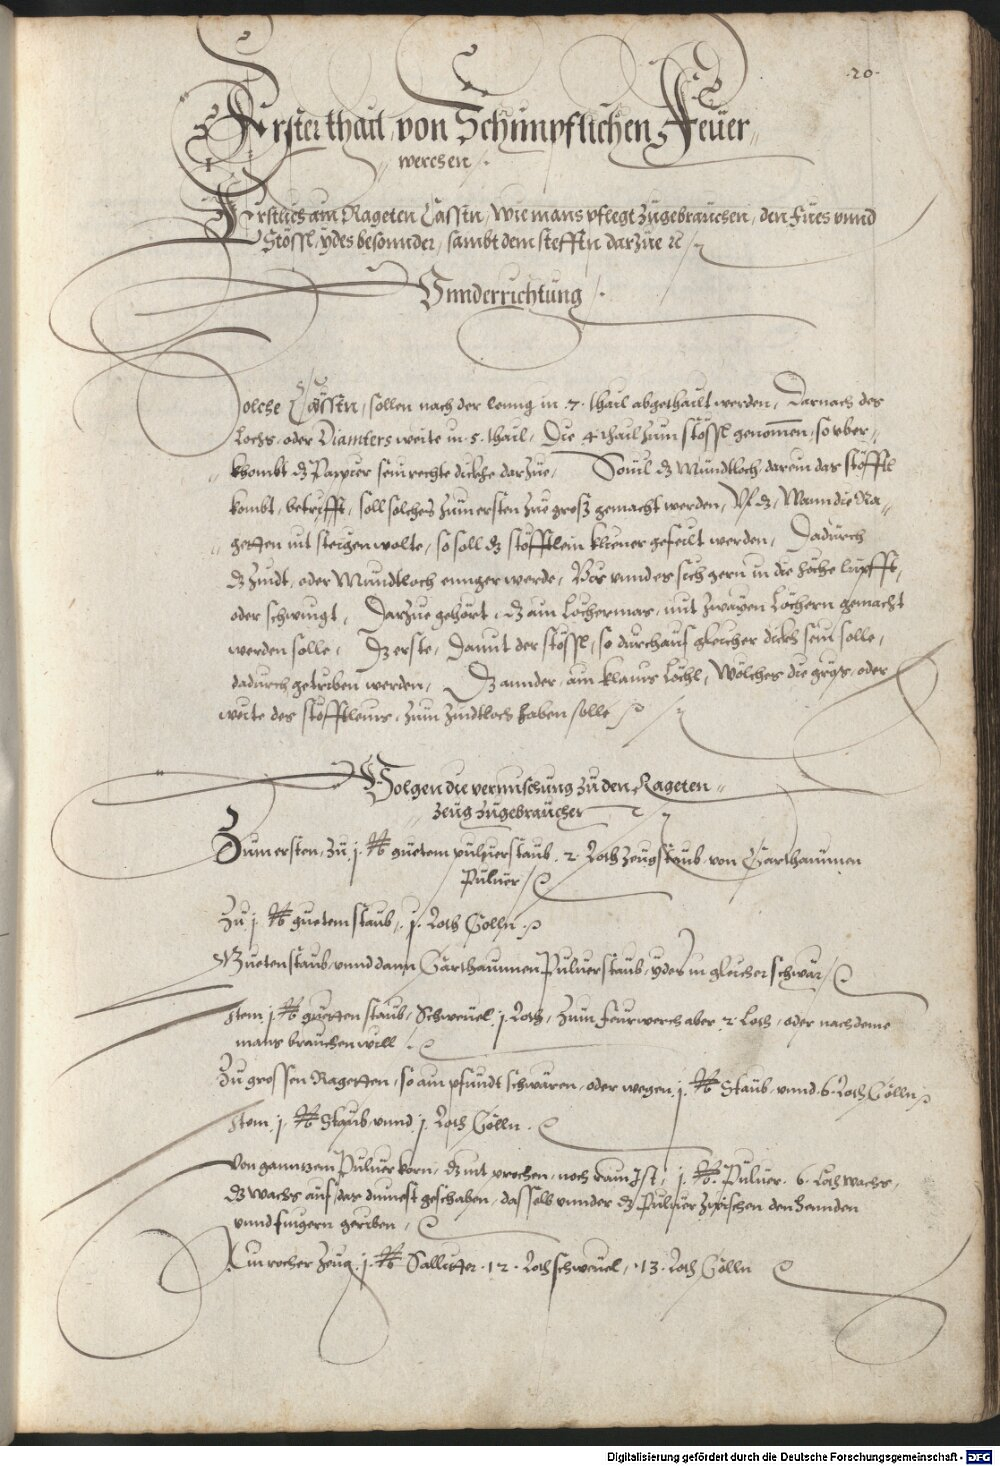 ·20·
Erster thail von Schimpflichen Feuer„
„wercken
Erstlich am Rageten Casstn, wie mans pflegt zugebrauchen, den Fues vnnd
Stössl, ydes besonnder, sambt dem stefftn darzue ꝛc
Vnnderrichtung
Solche Cässtn, sollen nach der lenng in ·7· thail abgethailt werden, Darnach des
Lochs oder Diamters weite in ·5· thail, Die ·4· thail zum stössl genommen, so vber„
„khombt dz Pappier sein rechte dickhe darzue, Souil dz Mundtloch darein das stöfftl
kombt, betrifft, soll solches zum ersten zue gross gemacht werden, Vf dz, Wann die Ra„
„getten nit steigen wolte, so soll dz stöfftlein kleiner gefeilt werden, Dadurch
dz Zindt, oder Mundtloch ennger werde, vnnd es sich gern in die höche lupfft,
oder schwingt, Darzue gehört, dz ain Löchermas, mit zwayen Löchern gemacht
werden solle, Dz erste, Damit der stössl, so durchaus gleicher dickh sein solle,
dadurch getriben werden, Dz annder, ain klains Löchl, Wölches die gröss, oder
weite des stöfftleins, zum Zindtloch haben solle
Volgen die vermischung zu den Rageten„
„zeug zugebrauchen
Zum ersten, zu j· ℔ guetem puluerstaub ·2· Loth zeugstaub von Carthaunnen
Puluer
Zu j ℔ guetem staub, ·j· Loth Colln
Guetenstaub, vnnd dann Carthaunnen Puluerstaub, ydes in gleicher schwär
Item j· ℔ guetten staub, Schweuel j· Loth, zum feurwerch aber ·2· Loth, oder nach deme
mans brauchen will
Zu grossen Ragetten, so ain pfundt schwären, oder wegen j· ℔ Staub vnnd ·6· Loth Cölln
Item j· ℔ Staub vnnd j· Loth Cölln
Von gannzem Puluer korn, dz nit prochen, noch ram Ist, j· ℔· Puluer ·6· Loth wachs,
dz wachs auf das dinnest geschaben, dasselb vnnder dz Puluer zwischen den henndten
vnnd fingern geriben,
Ain rocher Zeug j· ℔ Salliter ·12· Loth schweuel, ·13· Loth Cölln
Digitalisierung gefördert durch die Deutsche Forschungsgemeinschaft - DFG